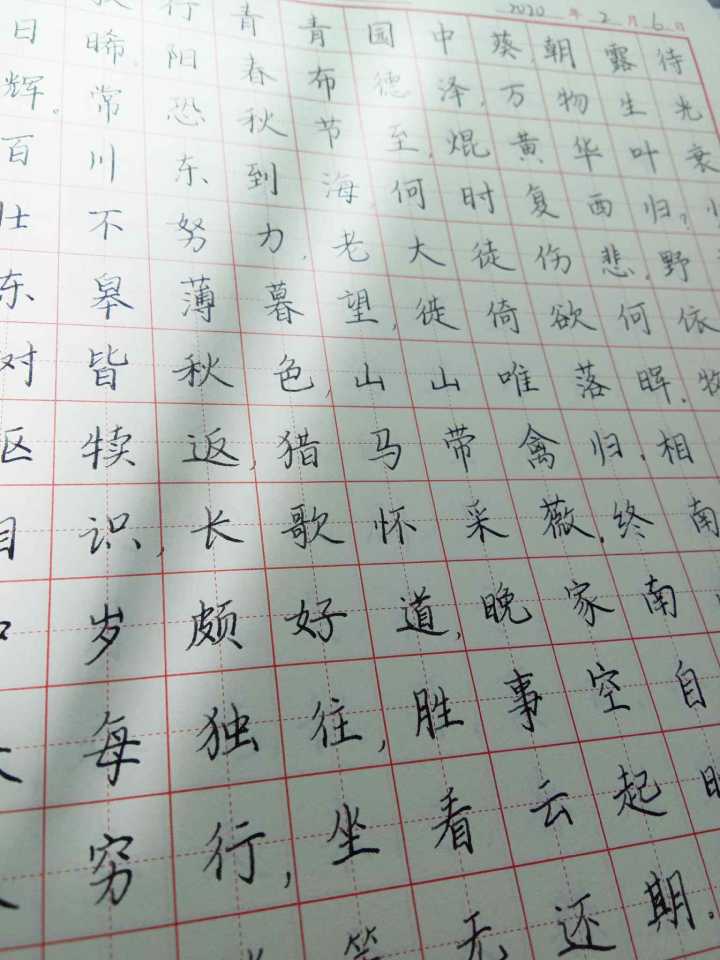 2020年2月6日
行青青园中葵,朝露待
日晞,阳春布德泽,万物生光
辉。常恐秋节至,焜黄华叶衰
百川东到海,何时复西归?
壮不努力,老大徒伤悲.野
东皋薄暮望,徙倚欲何依
树皆秋色,山山唯落晖.牧
驱犊返,猎马带禽归.相
相识,长歌怀采薇.终南
中岁颇好道,晚家南
每独往,胜事空自
穷行,坐看云起时
笑无还期.